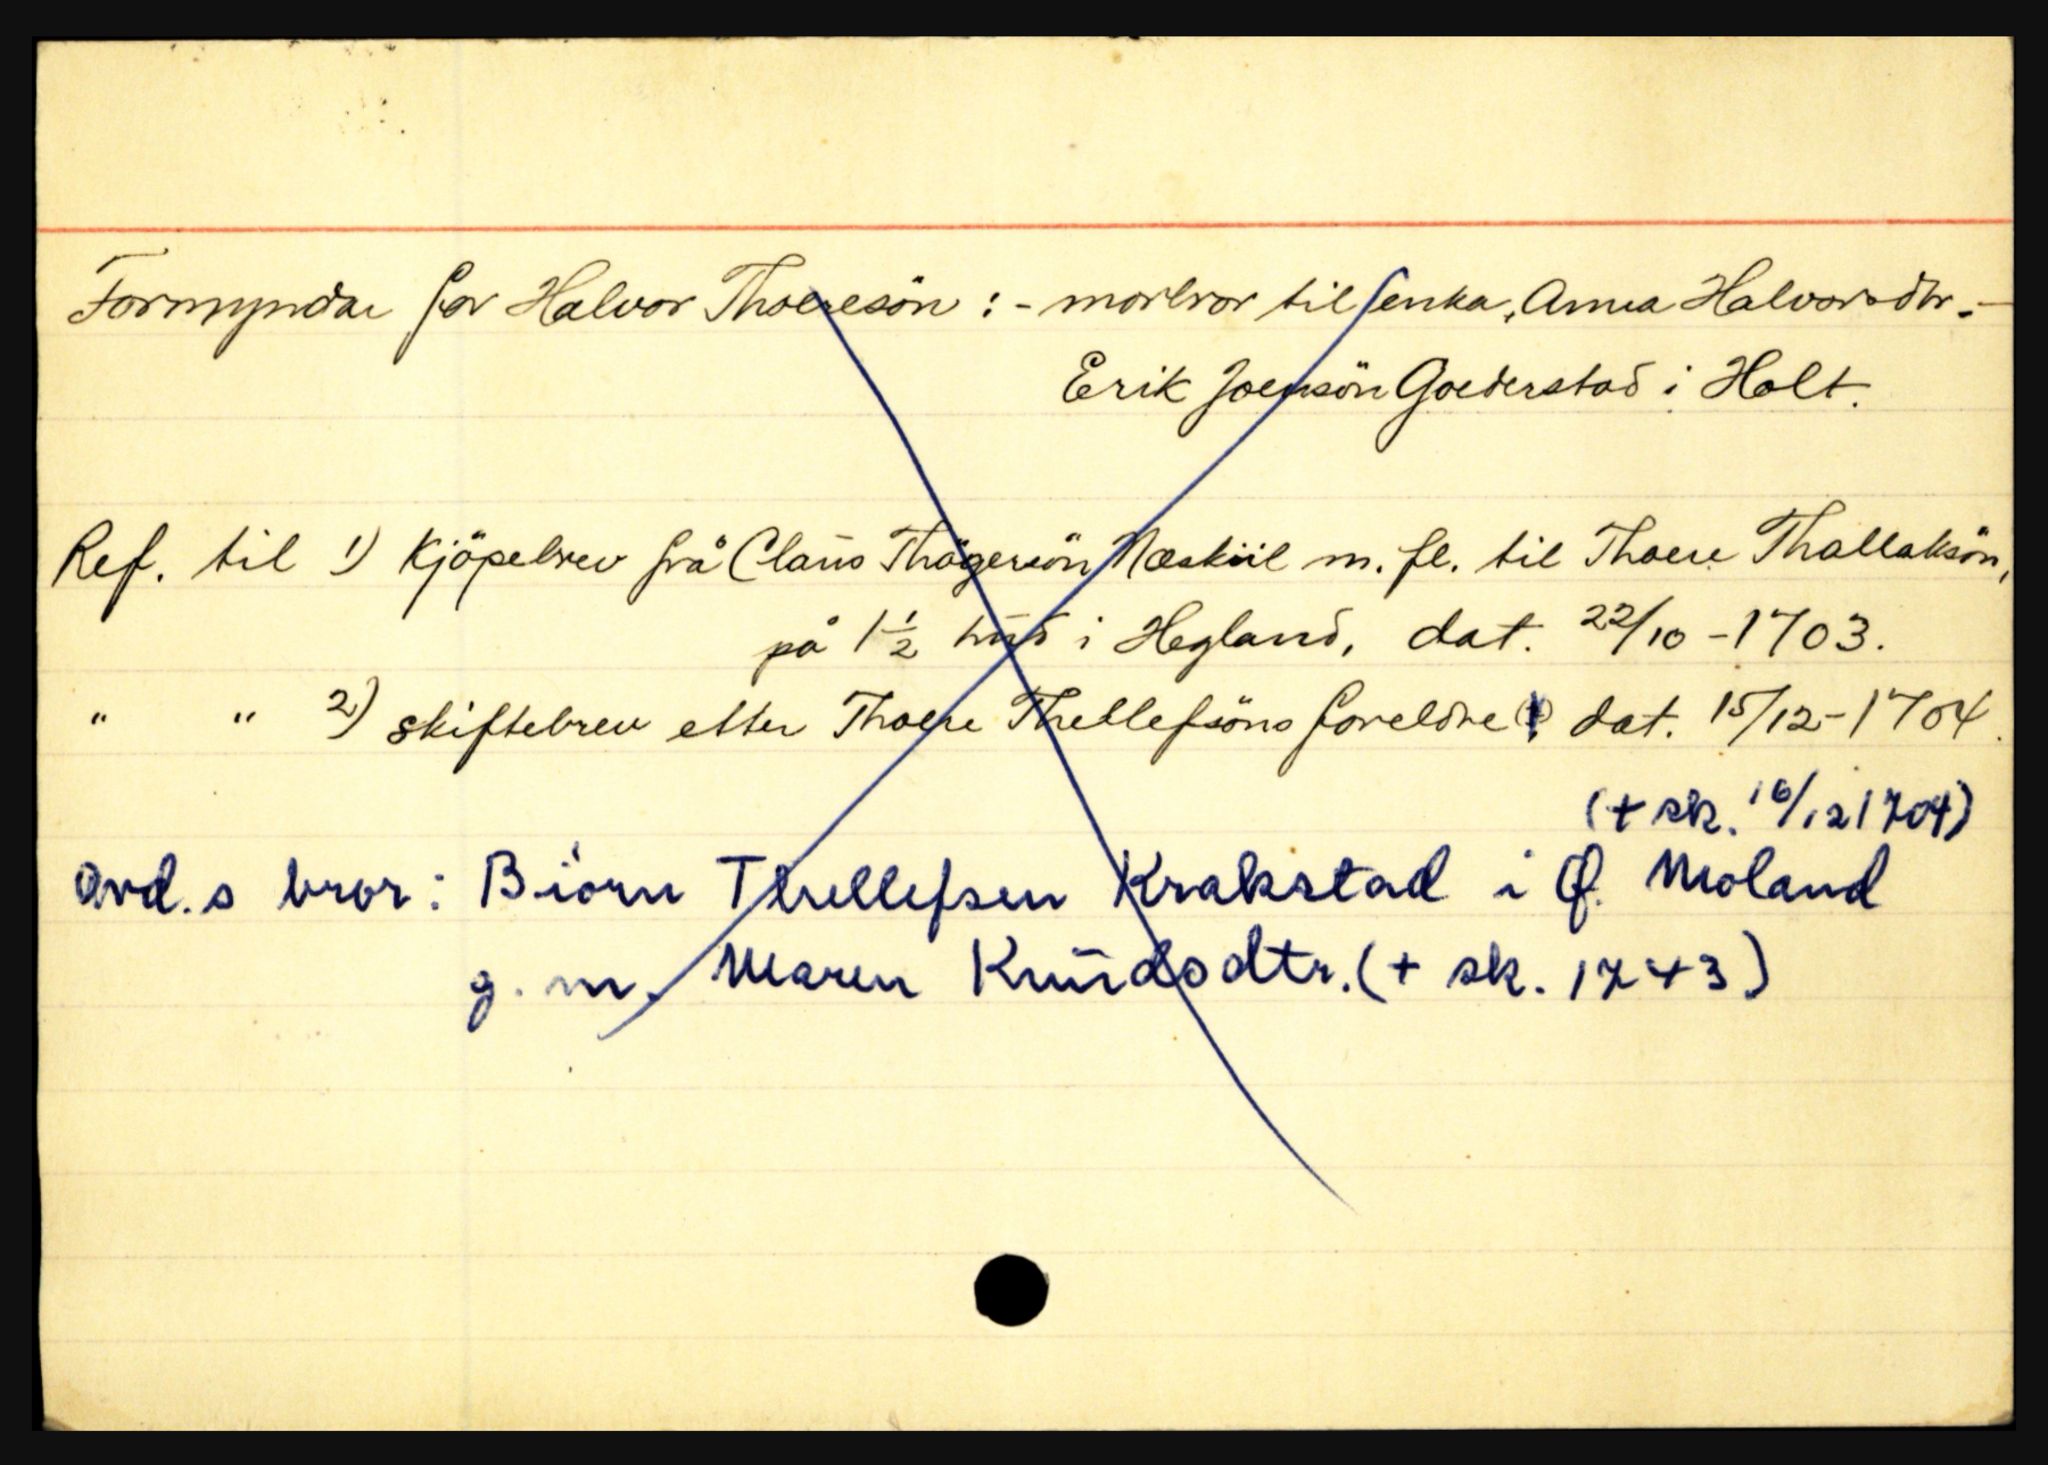 Formyndar for Halvor Thoeresön : - morbror til enka, Anna Halvorsdtr. -
Erik Joensön Goederstad i Holt.
Ref. til 1) Kjöpebrev frå Claus Thögersön Næskiil m. fl. til Thoere Thallaksön,
på 1 1/2 hud i Hegland, dat. 22/10 - 1703.
" " 2) skiftebrev etter Thoere Thellefsöns foreldre dat. 15/12 - 1704.
(+ sk. 16/12 1704)
avd.s bror: Biörn Thellefsen Krakstad i Ø. Moland
g. m. Maren Knudsdtr. (+ sk. 1743)